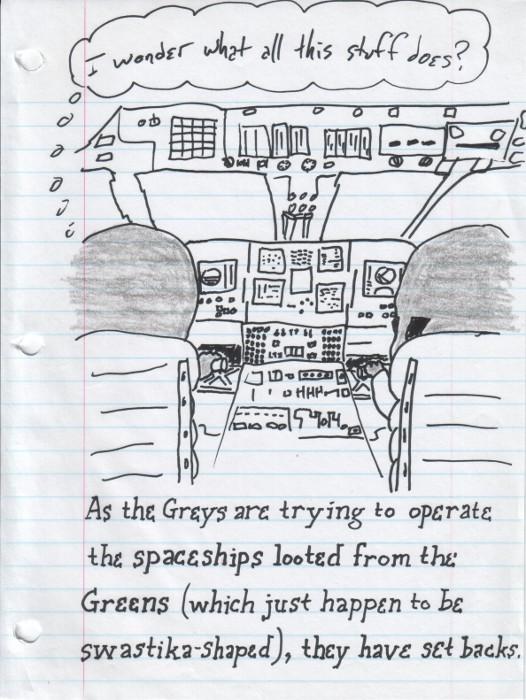 I wonder what all this stuff does?
As the Greys are trying to operate
the spaceships looted from the
Greens (which just happen to be
swastika-shaped), they have set backs.